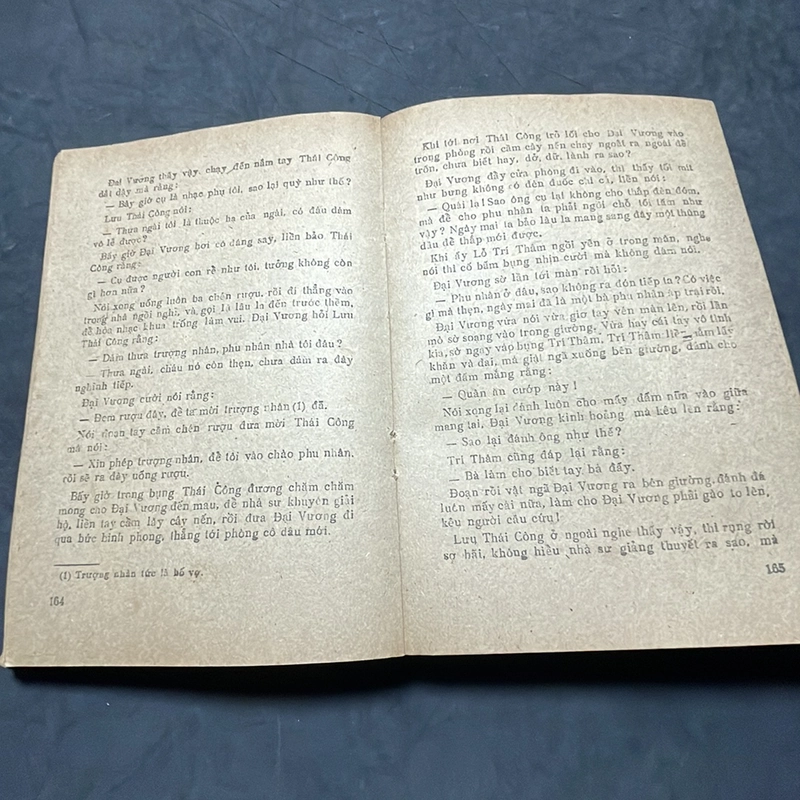 Đại Vương thấy vậy, chạy đến nắm tay Thái Công
dắt dậy mà rằng:
— Bây giờ cụ là nhạc phụ tôi, sao lại quỳ như thế?
Lưu Thái Công nói:
— Thưa ngài tôi là thuộc hạ của ngài, có đâu dám
vô lễ được?
Bấy giờ Đại Vương hơi có dáng say, liền bảo Thái
Công rằng:
— Cụ được người con rể như tôi, tưởng không còn
gì hơn nữa?
Nói xong uống luôn ba chén rượu, rồi đi thẳng vào
trong nhà ngồi nghỉ, và gọi lâu la đến trước thềm,
để hòa nhạc khua trống làm vui. Đại Vương hỏi Lưu
Thái Công rằng:
— Dám thưa trượng nhân, phu nhân nhà tôi đâu?
— Thưa ngài, cháu nó còn thẹn, chưa dám ra đây
nghinh tiếp.
Đại Vương cười nói rằng:
— Đem rượu đây, để tư mời trượng nhân (1) đã.
Nói đoạn tay cầm chén rượu đưa mời Thái Công
mà nói:
— Xin phép trượng nhân, để tôi vào chào phu nhân,
rồi sẽ ra đây uống rượu.
Bấy giờ trong bụng Thái Công đương chăm chăm
mong cho Đại Vương đến mau, để nhà sư khuyên giải
hộ, liền tay cầm lấy cây nến, rồi đưa Đại Vương đi
qua bức bình phong, thẳng tới phòng cô dâu mới.
(1) Trượng nhân tức là bố vợ.
164
Khi tới nơi Thái Công trỏ lối cho Đại Vương vào
trong phòng rồi cầm cây nến chạy ngoắt ra ngoài để
trốn, chưa biết hay, dở, dữ, lành ra sao?
Đại Vương đẩy cửa phòng đi vào, thì thấy tối mít
như bưng không có đèn đuốc chi cả, liền nói:
— Quái lạ! Sao ông cụ lại không cho thắp đèn đóm,
mà để cho phu nhân ta phải ngồi chỗ tối tăm như
vậy? Ngày mai ta bảo lâu la mang sang đây một thùng
dầu để thắp mới được.
Khi ấy Lỗ Trí Thâm ngồi yên ở trong màn, nghe
nói thì cố bấm bụng nhịn cười mà không dám nói.
Đại Vương sờ lần tới màn rồi hỏi:
— Phu nhân ở đâu, sao không ra đón tiếp ta? Có việc
gì mà thẹn, ngày mai đã là một bà phu nhân áp trại rồi.
Đại Vương vừa nói vừa giơ tay vén màn lên, rồi lần
mò sờ soạng vào trong giường. Vừa hay cái tay vô tình
kia, sờ ngay vào bụng Trí Thâm, Trí Thâm liền nắm lấy
khăn và đai, mà giật ngã xuống bên giường, đánh cho
một đấm mắng rằng:
— Quân ăn cướp này!
Nói xong lại đánh luôn cho mấy đấm nữa vào giữa
mang tai, Đại Vương kinh hoàng mà kêu lên rằng:
— Sao lại đánh ông như thế?
Trí Thâm cũng đáp lại rằng:
— Bà làm cho biết tay bà đây.
Đoạn rồi vật ngã Đại Vương ra bên giường, đánh đá
luôn mấy cái nữa, làm cho Đại Vương phải gào to lên,
kêu người cầu cứu!
Lưu Thái Công ở ngoài nghe thấy vậy, thì rụng rời
sợ hãi, không hiểu nhà sư giảng thuyết ra sao, mà
165